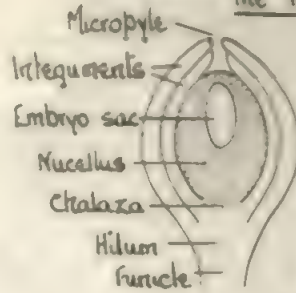 Micropyle
Integuments
Embryo sac
Nucellus
Chalaza
Hilum
Funicle